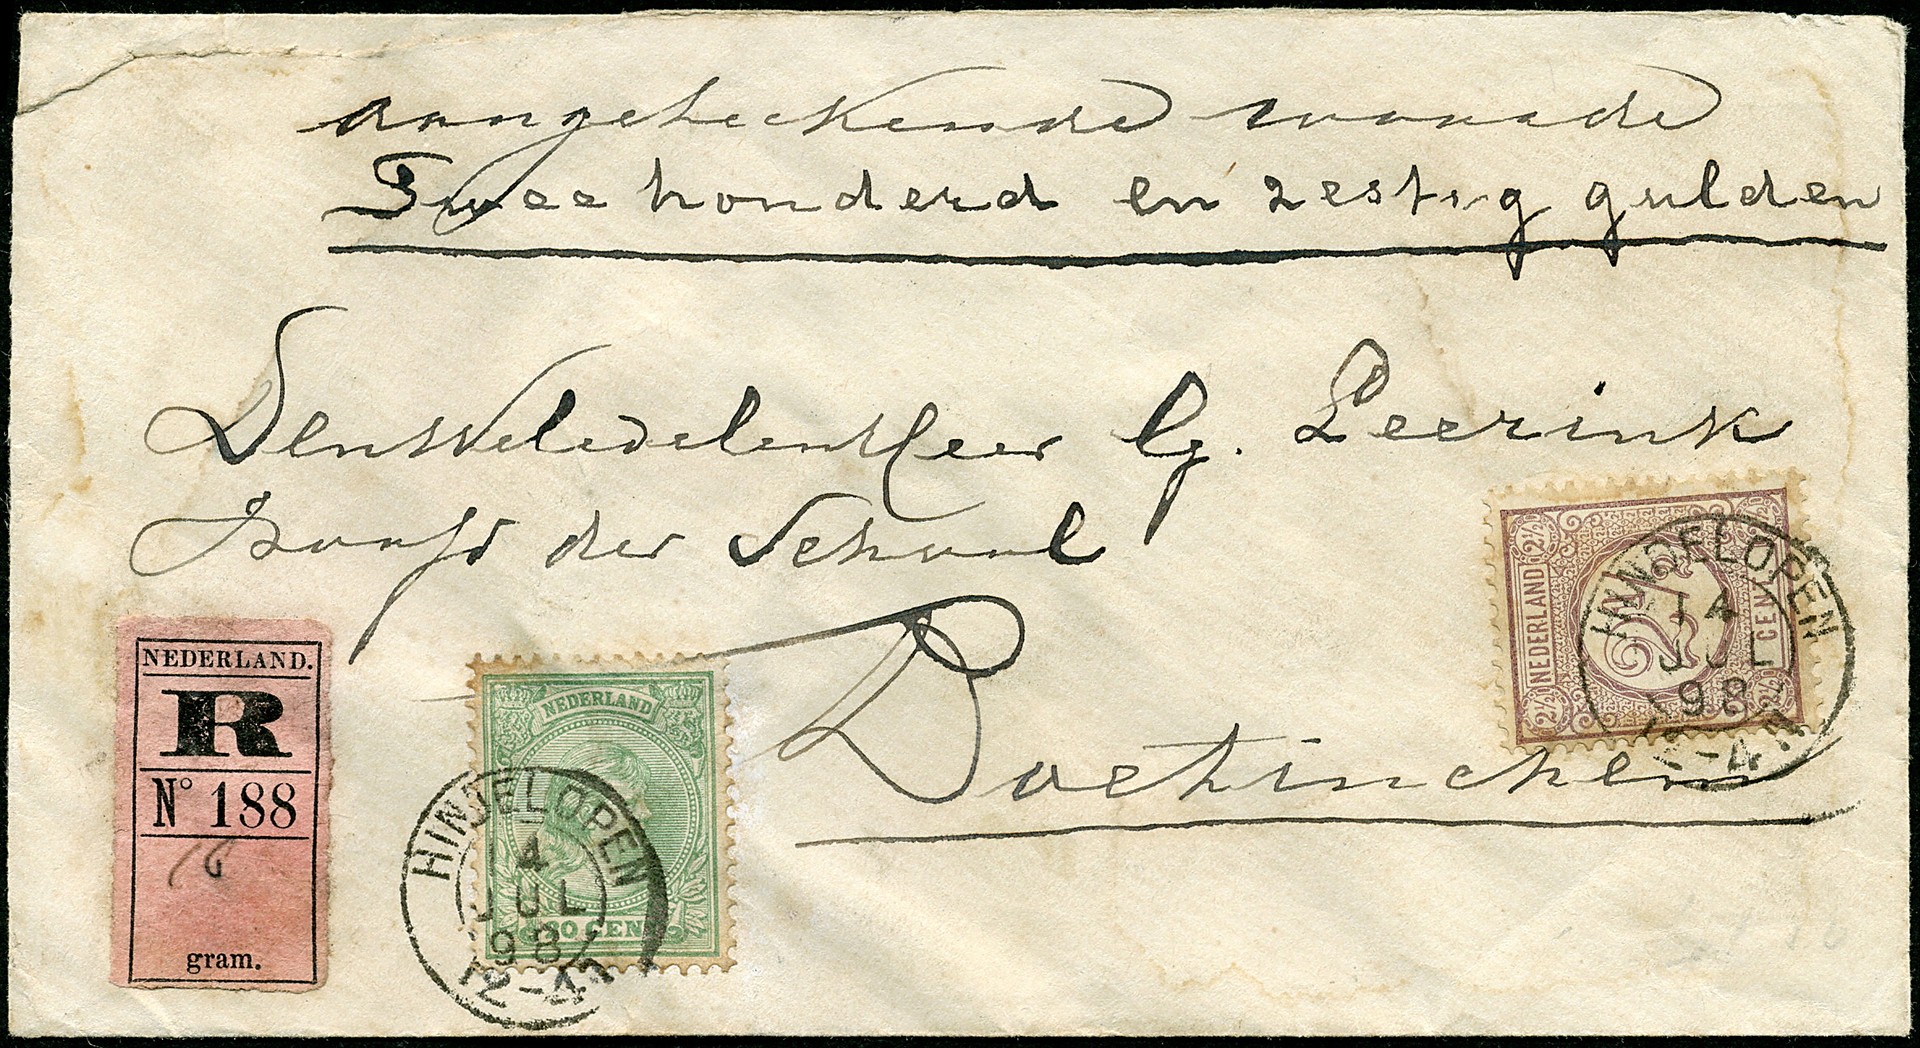 Aangeteekende waarde
Twee honderd en zestig gulden
Den Weledelen Heer G. Leerink
Hoofd der School
Doetinchem
NEDERLAND.
R
No 188
18
gram.
NEDERLAND
20 CENT
HINDELOPEN
4
JUL
98
12-4N
2½ 2½
NEDERLAND
2½
CENT
2½ 2½
HINDELOPEN
14
JUL
98
12-4N